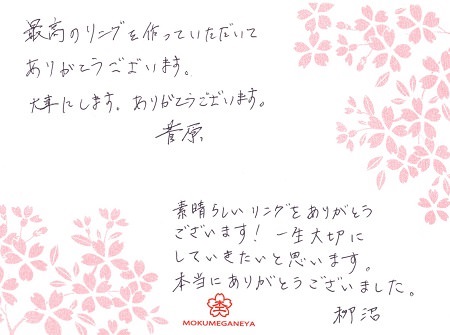 最高のリングを作っていただいて
ありがとうございます。
大事にします。ありがとうございます。
菅原
素晴らしいリングをありがとう
ございます！一生大切に
していきたいと思います。
本当にありがとうございました。
柳沼
MOKUMEGANEYA